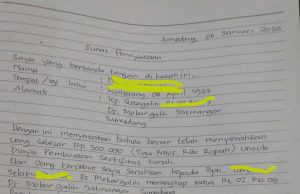 Sumedang, 06 Januari 2020
Surat Pernyataan
Saya yang bertanda tangan di bawah ini,
Nama :
Tempat/tgl lahir : Sumedang, 06 April 1977
Alamat : Kp. Sukagalih
Ds. Mekargalih Jatinangor
Sumedang
Dengan ini menyatakan bahwa benar telah menyerahkan
uang sebesar Rp. 300.000 (Tiga Ratus Ribu Rupiah) untuk
Biaya Pembuatan Sertifikat tanah.
Dan uang tersebut saya serahkan kepada Bpk.
Selaku Ds Mekargalih merangkap ketua Rt 02 Rw 09
Mekargalih Jatinangor Sumedang